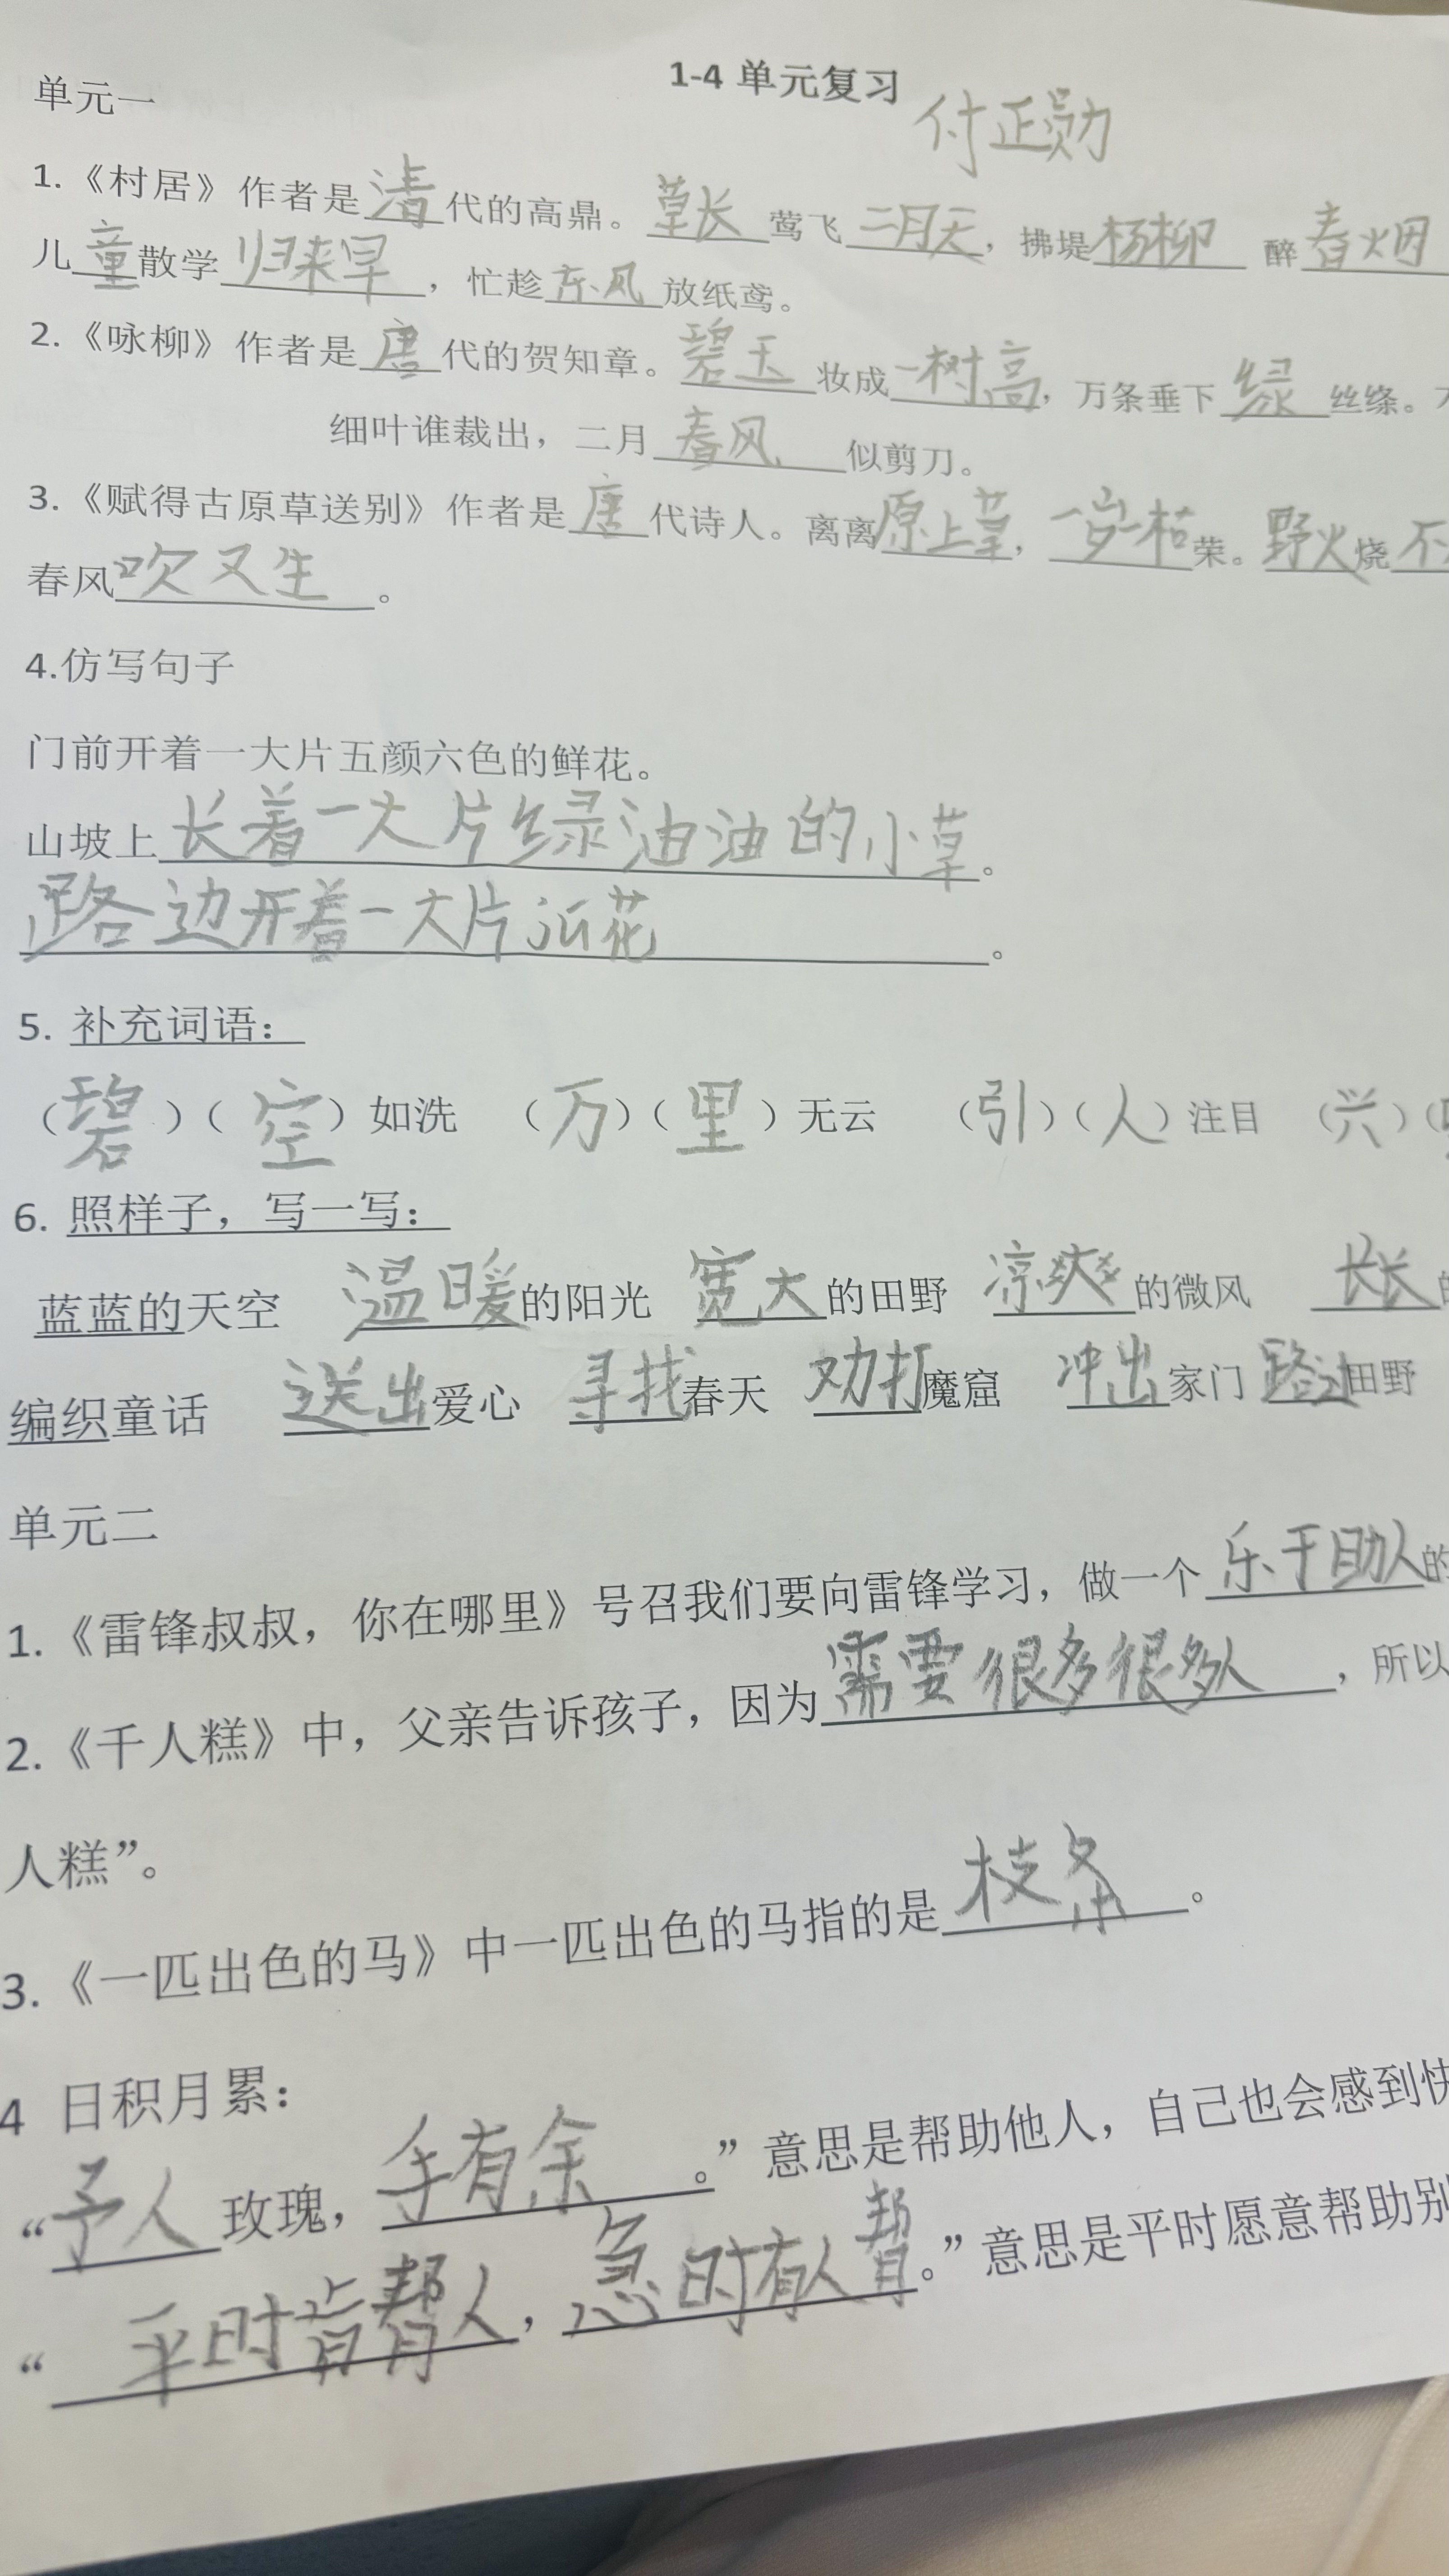 1-4 单元复习 付正勋
单元一
1.《村居》作者是清代的高鼎。草长莺飞二月天，拂堤杨柳 醉春烟
儿童散学归来早，忙趁东风放纸鸢。
2.《咏柳》作者是唐代的贺知章。碧玉妆成一树高，万条垂下绿丝绦。
细叶谁裁出，二月春风似剪刀。
3.《赋得古原草送别》作者是唐代诗人。离离原上草，一岁一枯荣。野火烧不
春风吹又生。
4.仿写句子
门前开着一大片五颜六色的鲜花。
山坡上长着一大片绿油油的小草。
路边开着一大片 花。
5. 补充词语：
（碧）（空）如洗 （万）（里）无云 （引）（人）注目 （兴）（
6. 照样子，写一写：
蓝蓝的天空 温暖的阳光 宽大的田野 凉爽的微风 长长
编织童话 送出爱心 寻找春天 劝打魔窟 冲出家门 路过田野
单元二
1.《雷锋叔叔，你在哪里》号召我们要向雷锋学习，做一个乐于助人的
2.《千人糕》中，父亲告诉孩子，因为需要很多很多人，所以
人糕”。
3.《一匹出色的马》中一匹出色的马指的是枝条。
4 日积月累：
“予人玫瑰，手有余。”意思是帮助他人，自己也会感到快
“平时肯帮人，急时有人帮。”意思是平时愿意帮助别